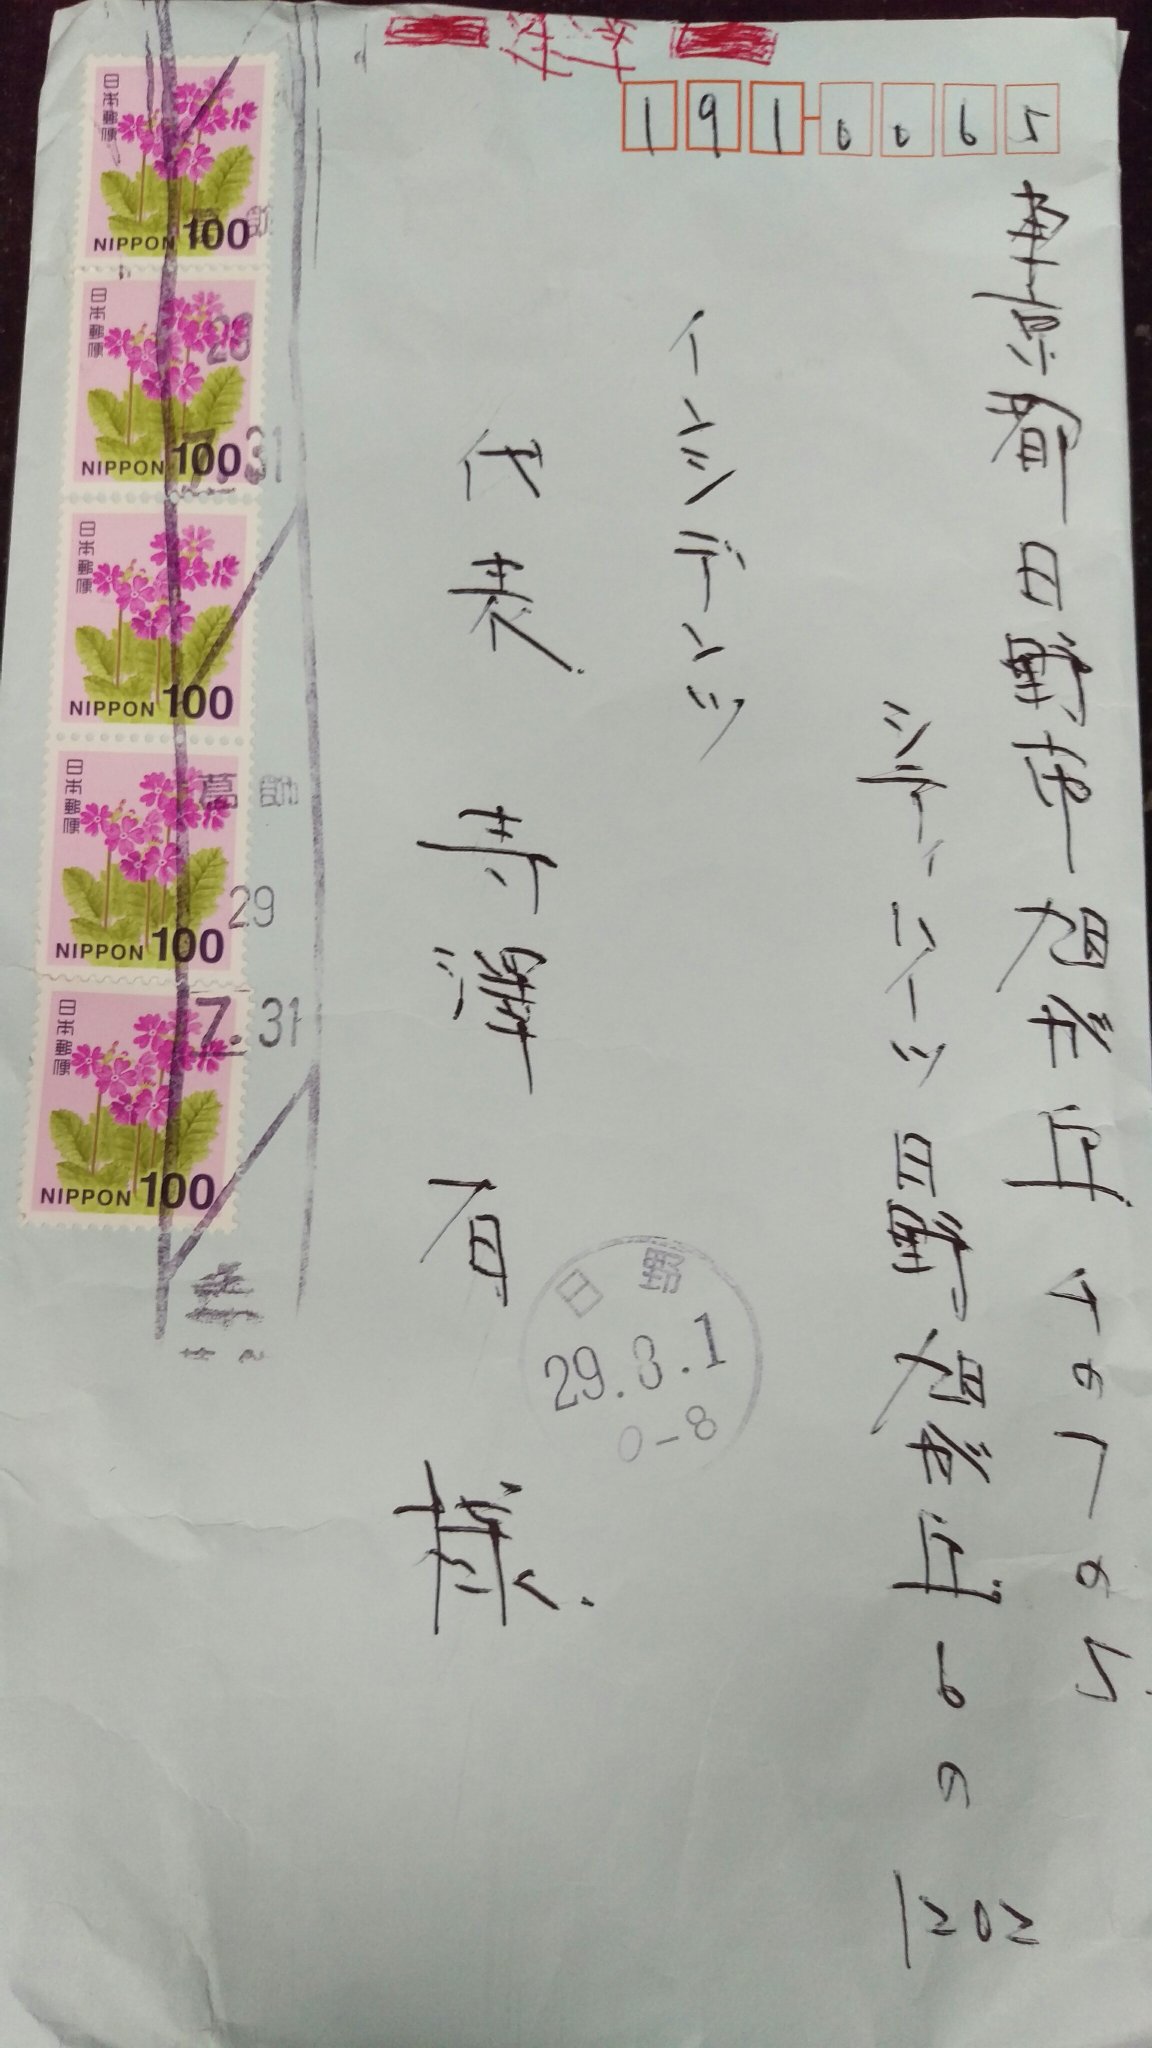 191-0065
東京都日野市旭が丘
シティハイツ日野旭が丘
インシデンツ
代表 寺澤 有 様
日本郵便
NIPPON 100
日本郵便
NIPPON 100
日本郵便
NIPPON 100
日本郵便
NIPPON 100
日本郵便
NIPPON 100
葛飾
29
7.31
日野
29.8.1
0-8